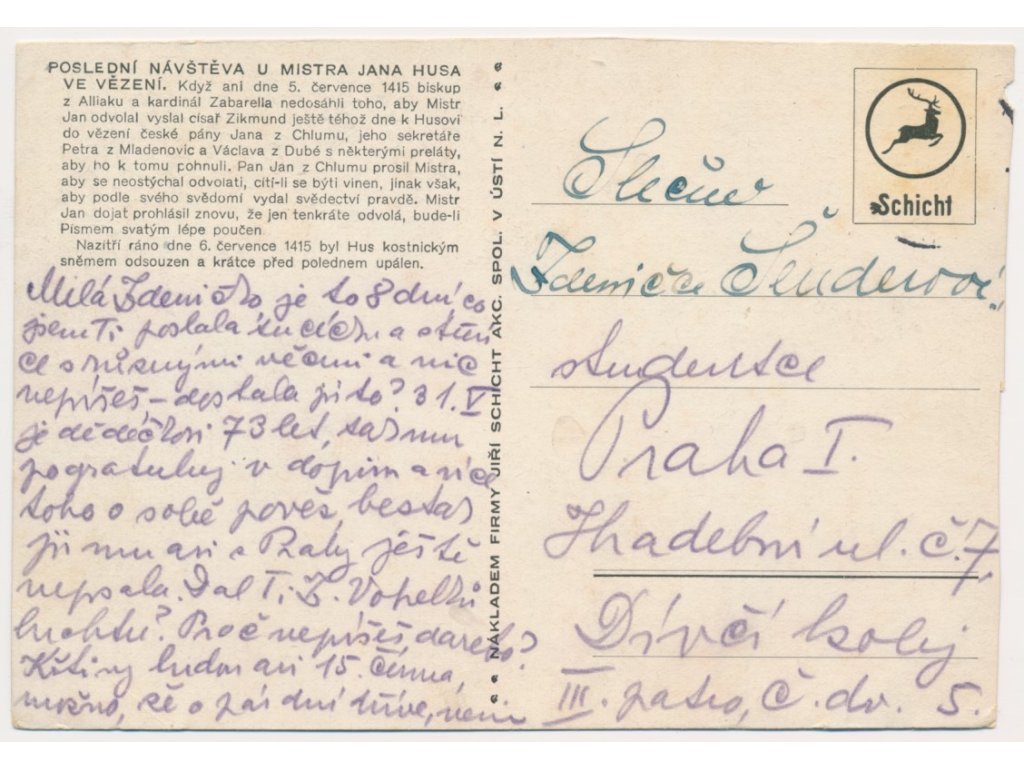 POSLEDNÍ NÁVŠTĚVA U MISTRA JANA HUSA
VE VĚZENÍ. Když ani dne 5. července 1415 biskup
z Alliaku a kardinál Zabarella nedosáhli toho, aby Mistr
Jan odvolal vyslal císař Zikmund ještě téhož dne k Husovi
do vězení české pány Jana z Chlumu, jeho sekretáře
Petra z Mladenovic a Václava z Dubé s některými preláty,
aby ho k tomu pohnuli. Pan Jan z Chlumu prosil Mistra,
aby se neostýchal odvolati, cítí-li se býti vinen, jinak však,
aby podle svého svědomí vydal svědectví pravdě. Mistr
Jan dojat prohlásil znovu, že jen tenkráte odvolá, bude-li
Písmem svatým lépe poučen.
Nazítří ráno dne 6. července 1415 byl Hus kostnickým
sněmem odsouzen a krátce před polednem upálen.
Milá Zdeničko je to 8 dní co
jsem Ti poslala a
ce s různými věcmi a nic
nepíšeš – dostala jsi to? 31. V
je dědečkovi 73 let, tak mu
pogratuluj v dopisu a více
toho o sobě pověz, beztak
jsi mu asi z Prahy ještě
nepsala. Dal Ti Z.
buchtu? Proč nepíšeš dareto?
Křtiny budou asi 15. června,
možno, že o pár dní dříve, není
NÁKLADEM FIRMY JIŘÍ SCHICHT AKC. SPOL. V ÚSTÍ N. L.
Schicht
Slečně
Zdeničce
studentce
Praha I.
Hradební ul. č. 7.
Dívčí kolej
III. patro, č. dv. 5.